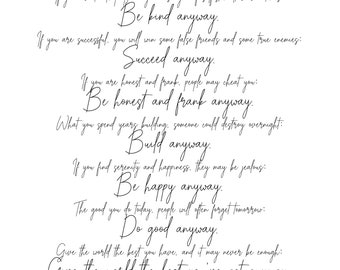 Be kind anyway.
If you are successful, you will win some false friends and some true enemies:
Succeed anyway.
If you are honest and frank, people may cheat you:
Be honest and frank anyway.
What you spend years building, someone could destroy overnight:
Build anyway.
If you find serenity and happiness, they may be jealous:
Be happy anyway.
The good you do today, people will often forget tomorrow:
Do good anyway.
Give the world the best you have, and it may never be enough: